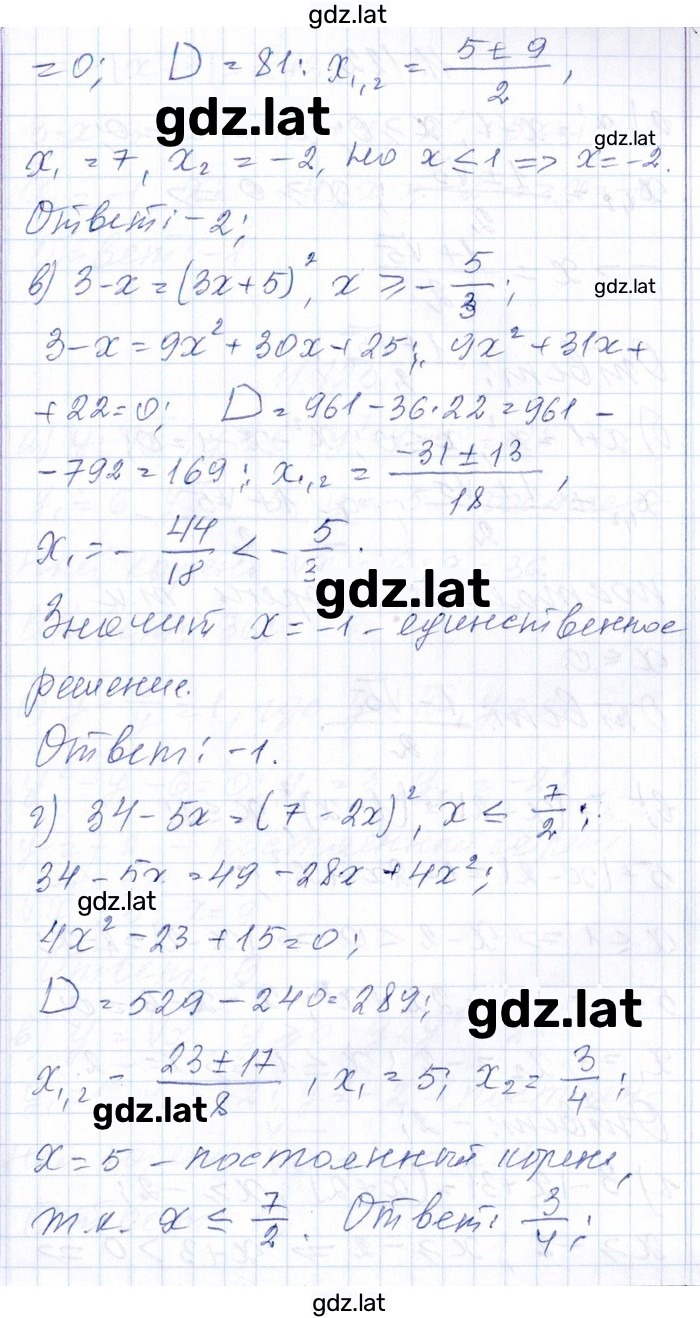 gdz.lat
= 0; D = 81: x₁,₂ = (5 ± 9)/2,
gdz.lat
gdz.lat
x₁ = 7, x₂ = -2, но x ≤ 1 => x = -2.
Ответ: -2;
в) 3 - x = (3x + 5)², x ≥ - 5/3;
gdz.lat
3 - x = 9x² + 30x + 25; 9x² + 31x +
+ 22 = 0; D = 961 - 36·22 = 961 -
- 792 = 169; x₁,₂ = (-31 ± 13)/18,
x₁ = - 44/18 < - 5/3.
gdz.lat
Значит x = -1 - единственное
решение.
Ответ: -1.
г) 34 - 5x = (7 - 2x)², x ≤ 7/2;
34 - 5x = 49 - 28x + 4x²;
gdz.lat
4x² - 23 + 15 = 0;
D = 529 - 240 = 289;
gdz.lat
x₁,₂ = (23 ± 17)/8, x₁ = 5; x₂ = 3/4;
gdz.lat
x = 5 - постоянный корень,
т.к. x ≤ 7/2. Ответ: 3/4;
gdz.lat